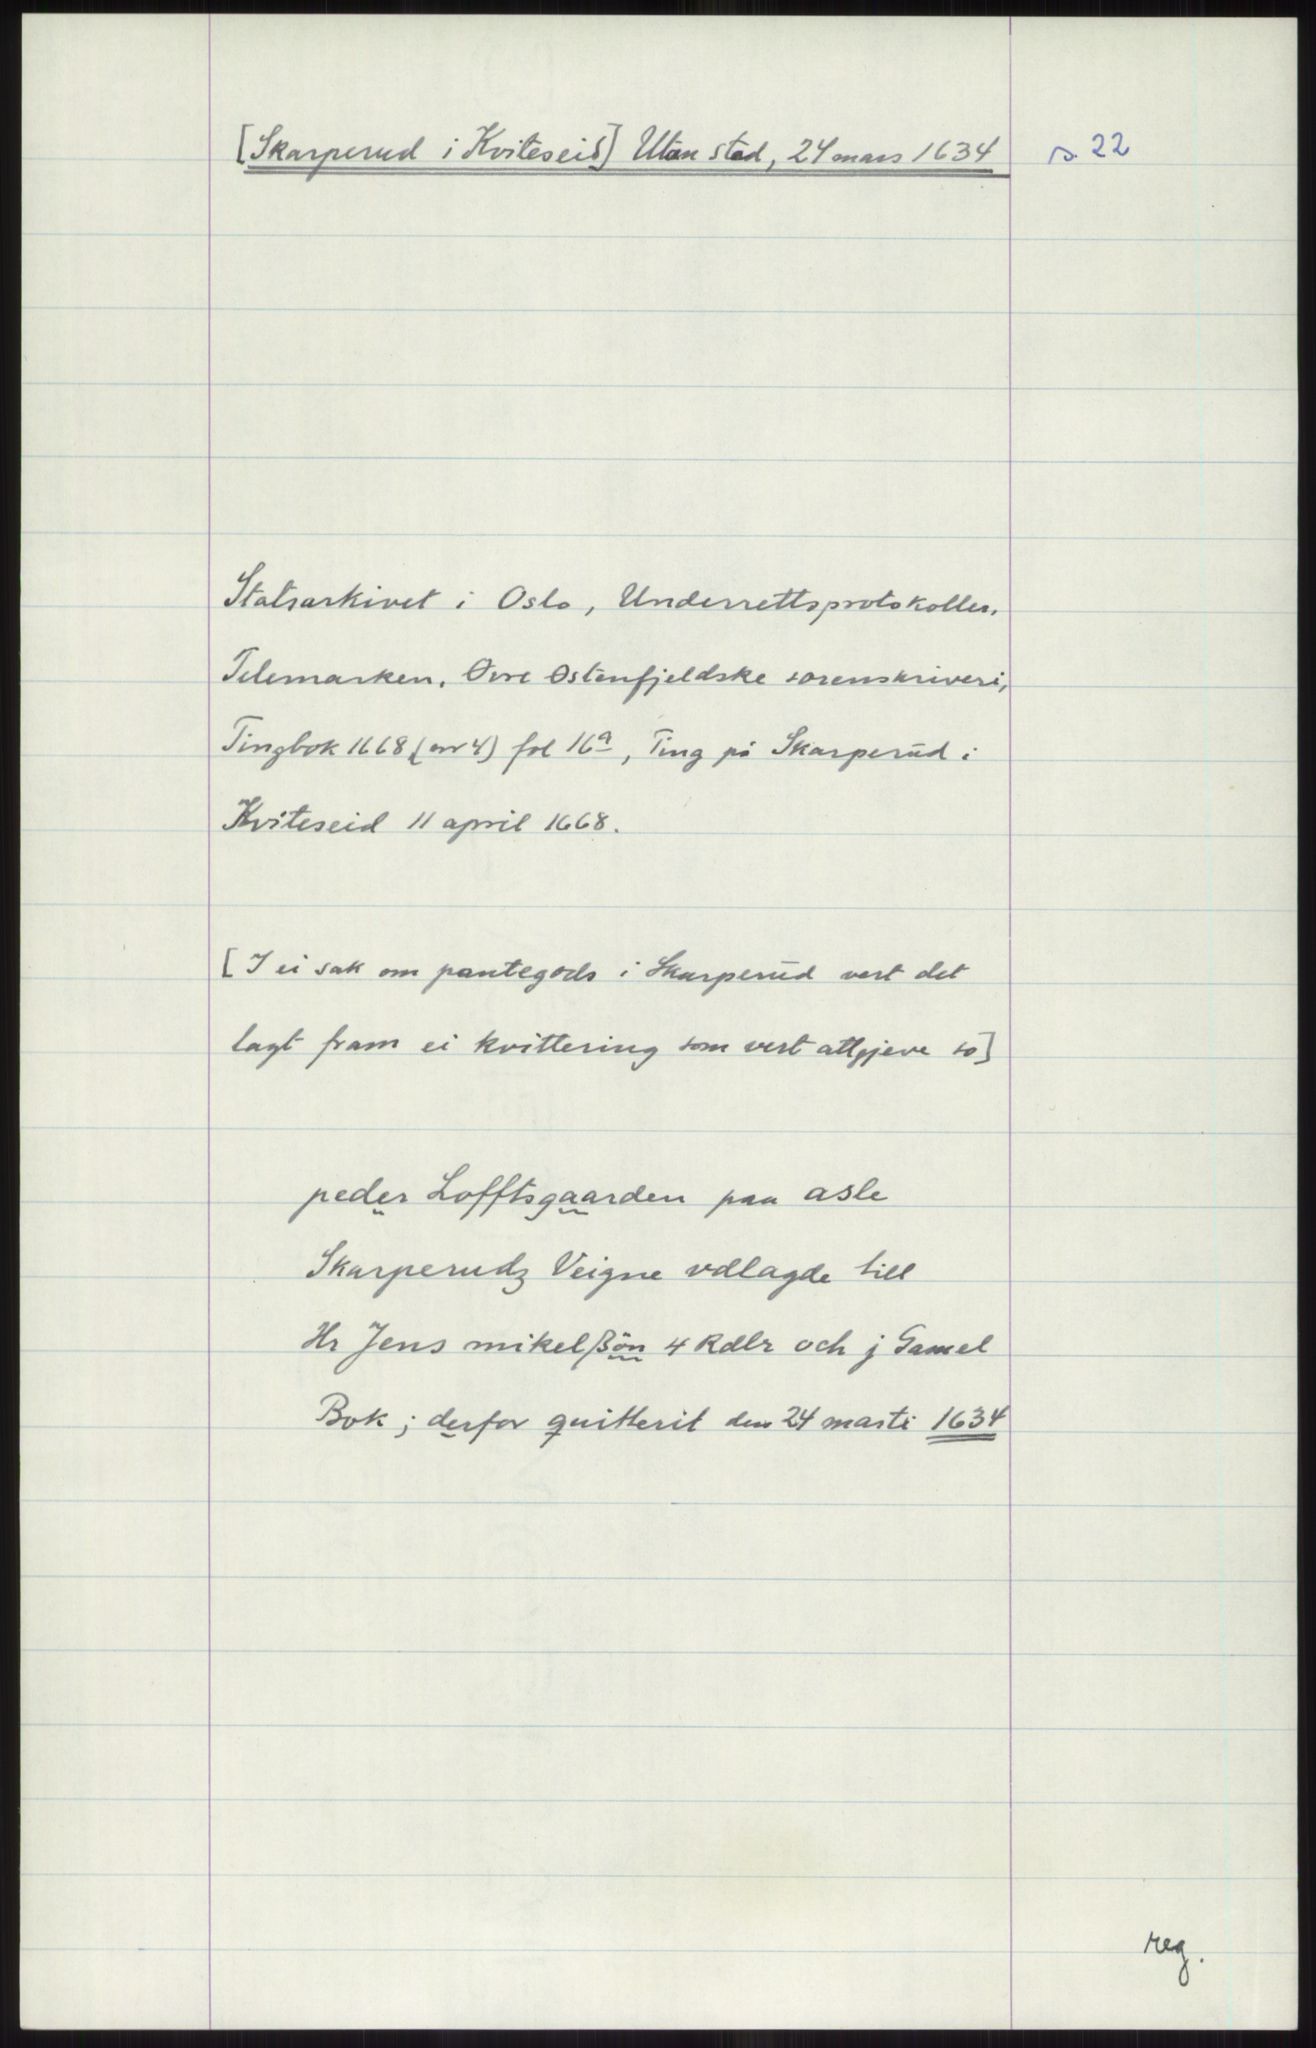 [Skarperud i Kviteseid] Utan stad, 24 mars 1634
s. 22
Statsarkivet i Oslo, Underrettsprotokoller.
Telemarken. Øvre Østenfjeldske sorenskriveri,
Tingbok 1668 (nr 4) fol 16a, Ting på Skarperud i
Kviteseid 11 april 1668.
[I ei sak om pantegods i Skarperud vert det
lagt fram ei kvittering som vert attgjeve so]
peder Lofftsgaarden paa asle
Skarperudz Veigne vdlagde till
Hr Jens mikelßön 4 Rdlr och j Gamel
Bok; derfor quitterit den 24 marti 1634
reg.